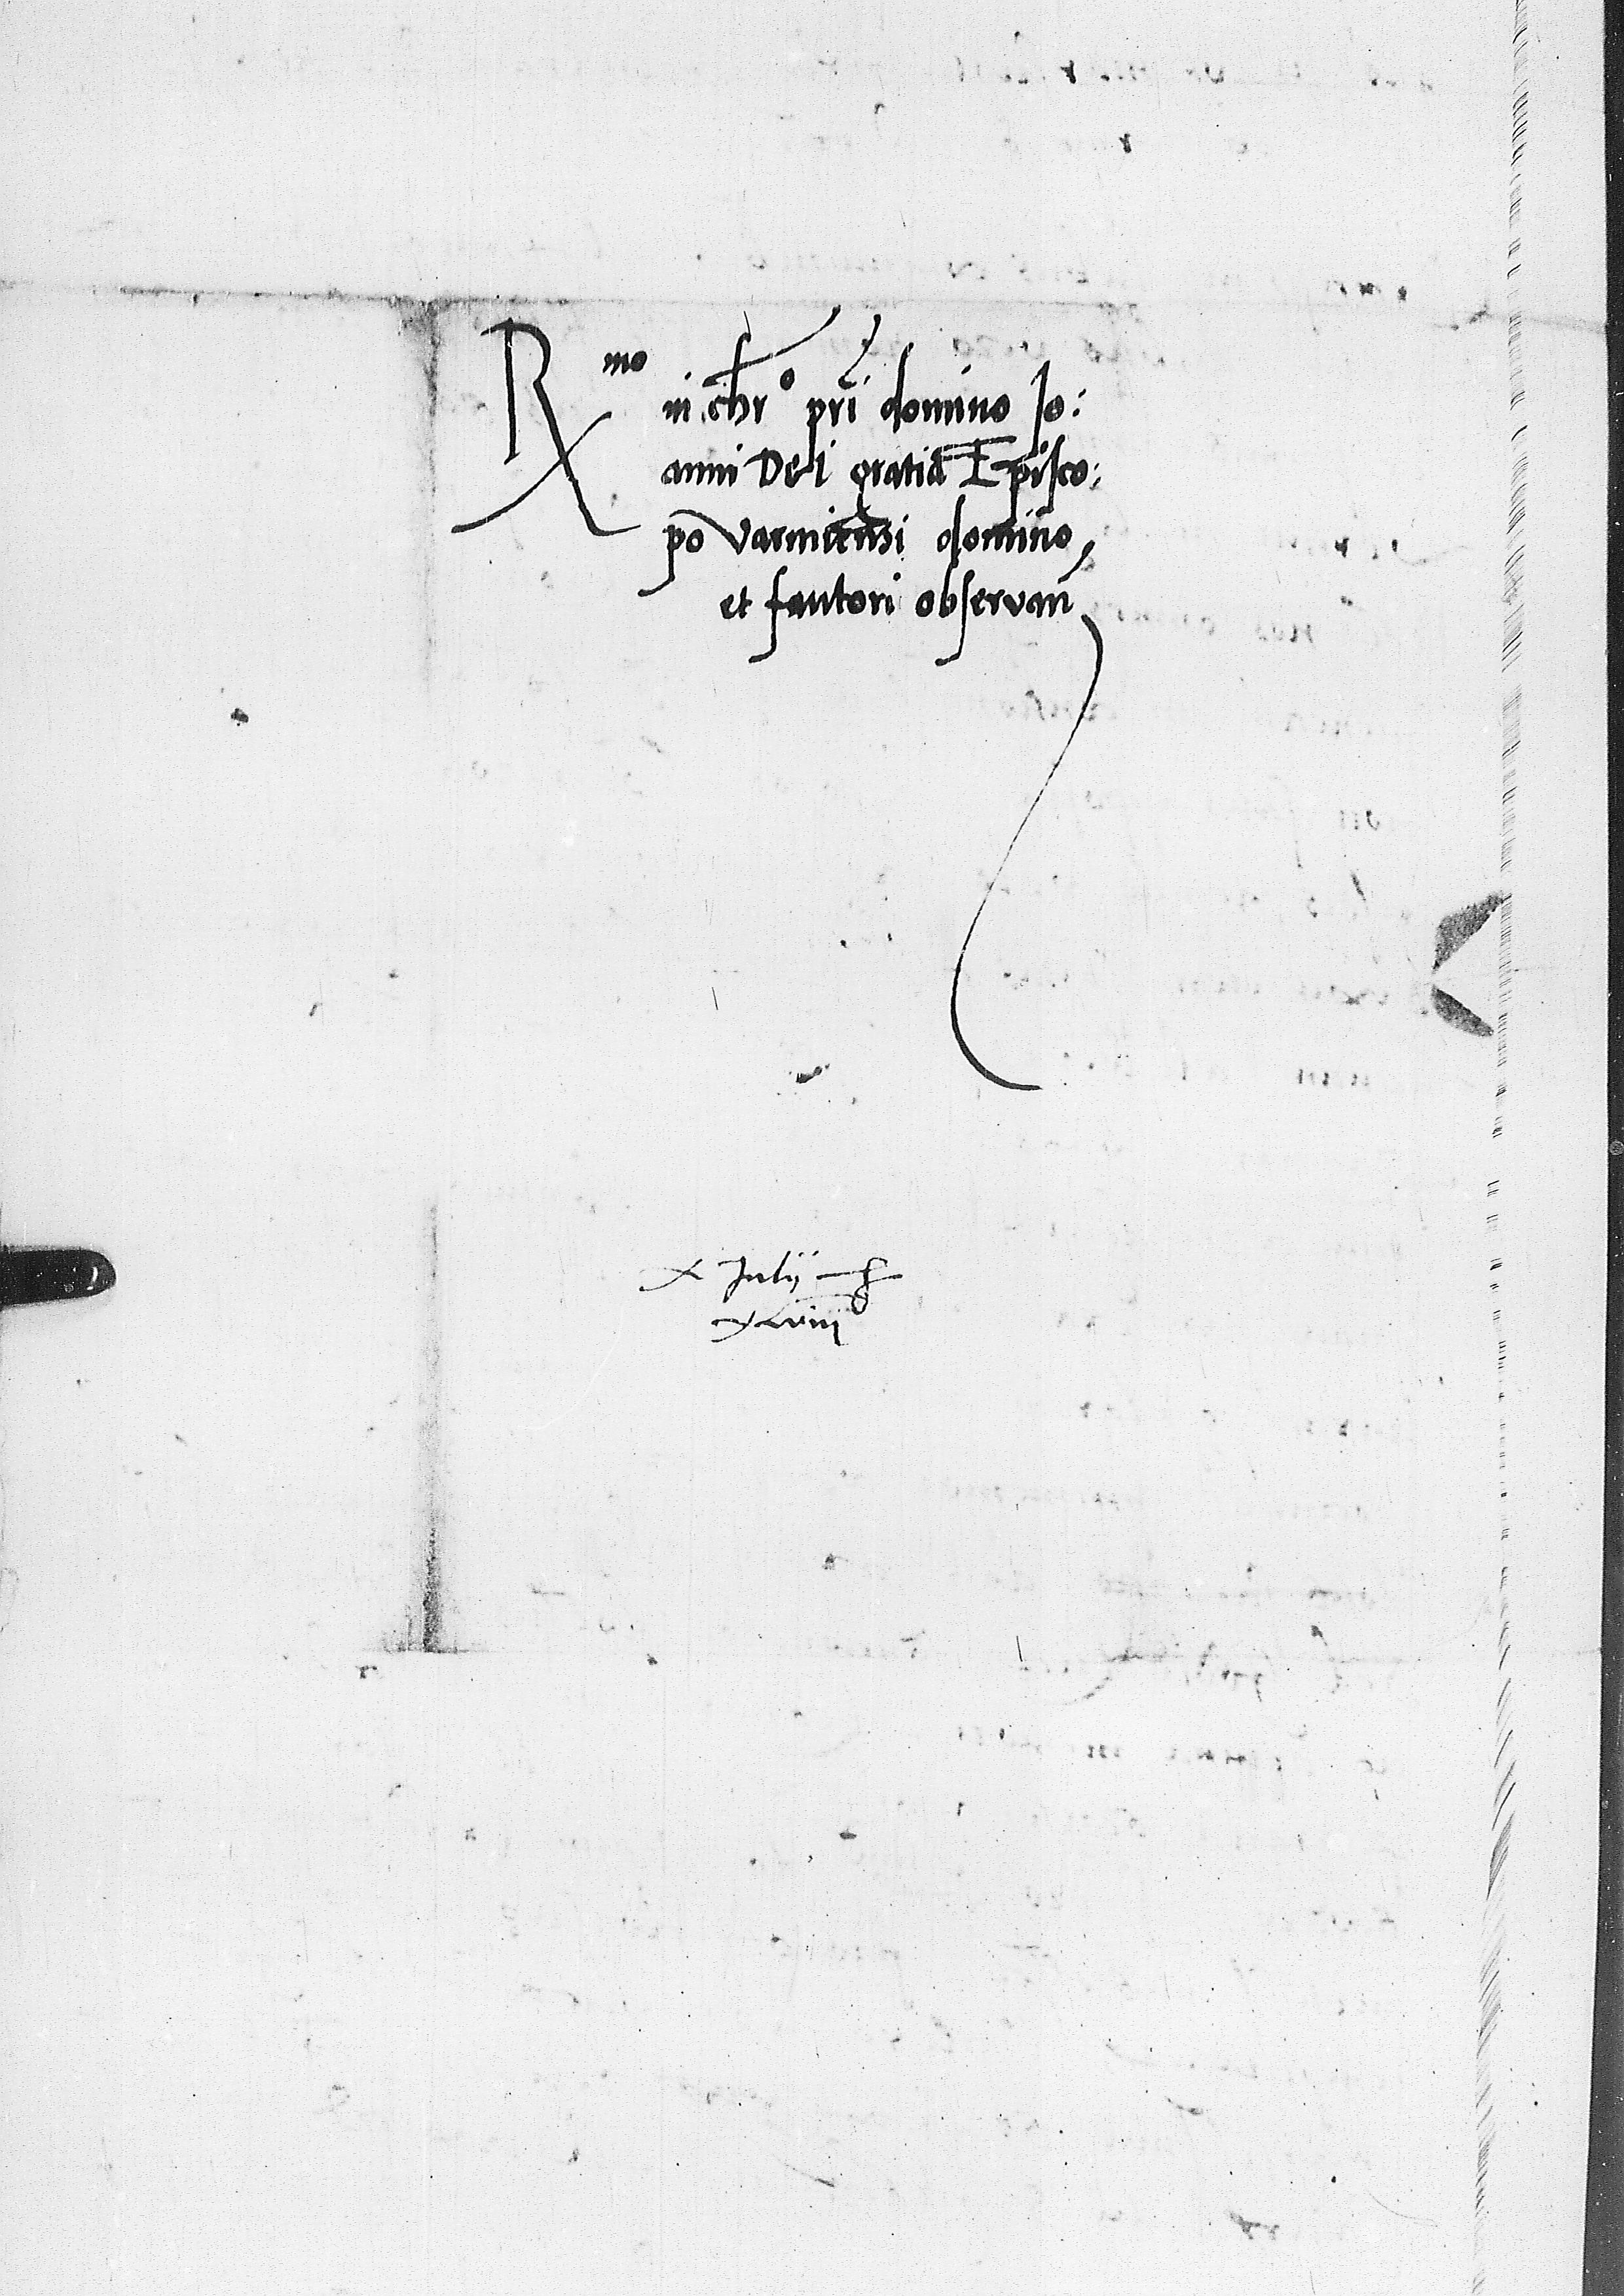 Rmo in chro pri domino Jo:
anni Dei gratia Episco:
po Varmiensi domino
et fautori observan
X Julij
xlviii